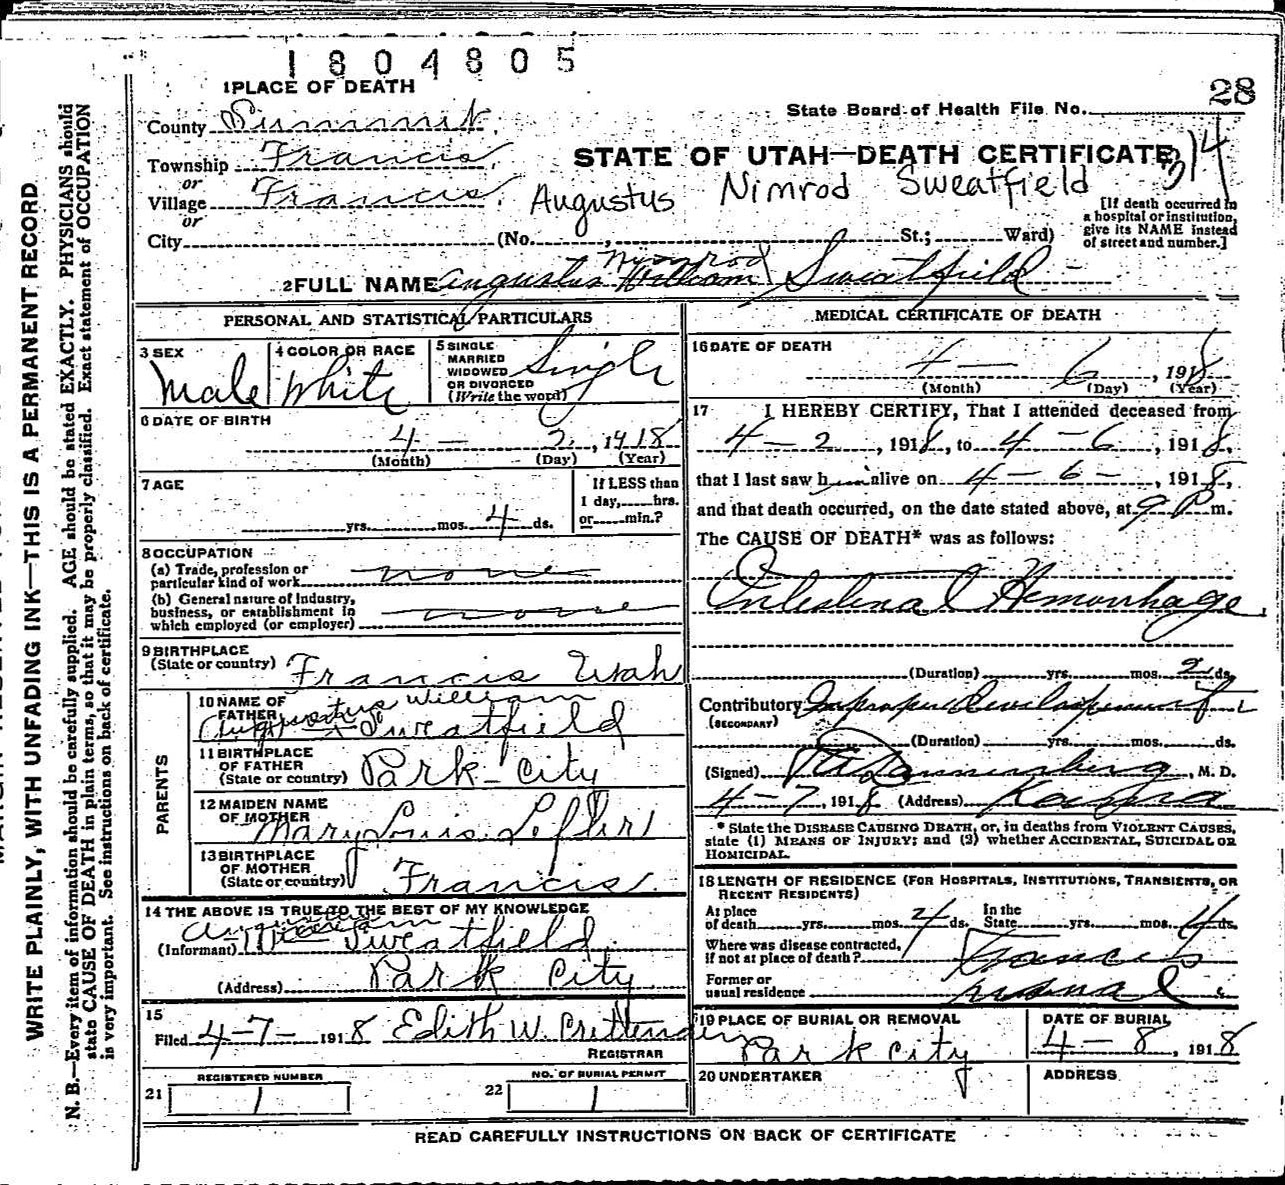 1804805
1 PLACE OF DEATH
28
State Board of Health File No.
County Summit
Township Francis
STATE OF UTAH—DEATH CERTIFICATE
314
or
Village Francis
Augustus Nimrod Sweatfield
or
City (No. , St.; Ward)
[If death occurred in
a hospital or institution,
give its NAME instead
of street and number.]
Nymrod
2 FULL NAME Augustus William Sweatfield
PERSONAL AND STATISTICAL PARTICULARS
3 SEX
Male
4 COLOR OR RACE
White
5 SINGLE
MARRIED
WIDOWED
OR DIVORCED
(Write the word)
Single
6 DATE OF BIRTH
4 — 2, 1918
(Month) (Day) (Year)
7 AGE
yrs. mos. 4 ds.
If LESS than
1 day, hrs.
or min.?
8 OCCUPATION
(a) Trade, profession or
particular kind of work none
(b) General nature of Industry,
business, or establishment in
which employed (or employer) none
9 BIRTHPLACE
(State or country) Francis Utah
PARENTS
10 NAME OF
FATHER
Augustus William
Sweatfield
11 BIRTHPLACE
OF FATHER
(State or country) Park City
12 MAIDEN NAME
OF MOTHER
Mary Louis Lefler
13 BIRTHPLACE
OF MOTHER
(State or country) Francis
14 THE ABOVE IS TRUE TO THE BEST OF MY KNOWLEDGE
(Informant) Sweatfield
(Address) Park City
15
Filed 4-7- 1918 Edith W. Crittenden
REGISTRAR
REGISTERED NUMBER
21 1
NO. OF BURIAL PERMIT
22 1
MEDICAL CERTIFICATE OF DEATH
16 DATE OF DEATH
4 — 6, 1918
(Month) (Day) (Year)
17 I HEREBY CERTIFY, That I attended deceased from
4 - 2, 1918, to 4 - 6, 1918,
that I last saw him alive on 4 - 6 -, 1918,
and that death occurred, on the date stated above, at 9 P m.
The CAUSE OF DEATH* was as follows:
Intestinal Hemorrhage
(Duration) yrs. mos. 2 ds.
Contributory Improper Development
(SECONDARY)
(Duration) yrs. mos. ds.
(Signed) , M. D.
4-7, 1918 (Address) Kamas
* State the DISEASE CAUSING DEATH, or, in deaths from VIOLENT CAUSES,
state (1) MEANS OF INJURY; and (3) whether ACCIDENTAL, SUICIDAL OR
HOMICIDAL.
18 LENGTH OF RESIDENCE (FOR HOSPITALS, INSTITUTIONS, TRANSIENTS, OR
RECENT RESIDENTS)
At place
of death yrs. mos. 4 ds.
In the
State yrs. mos. 4 ds.
Where was disease contracted,
if not at place of death? Francis
Former or
usual residence
19 PLACE OF BURIAL OR REMOVAL
Park City
DATE OF BURIAL
4 - 8, 1918
20 UNDERTAKER
ADDRESS
READ CAREFULLY INSTRUCTIONS ON BACK OF CERTIFICATE
WRITE PLAINLY, WITH UNFADING INK—THIS IS A PERMANENT RECORD
N. B.—Every item of information should be carefully supplied. AGE should be stated EXACTLY. PHYSICIANS should
state CAUSE OF DEATH in plain terms, so that it may be properly classified. Exact statement of OCCUPATION
is very important. See instructions on back of certificate.